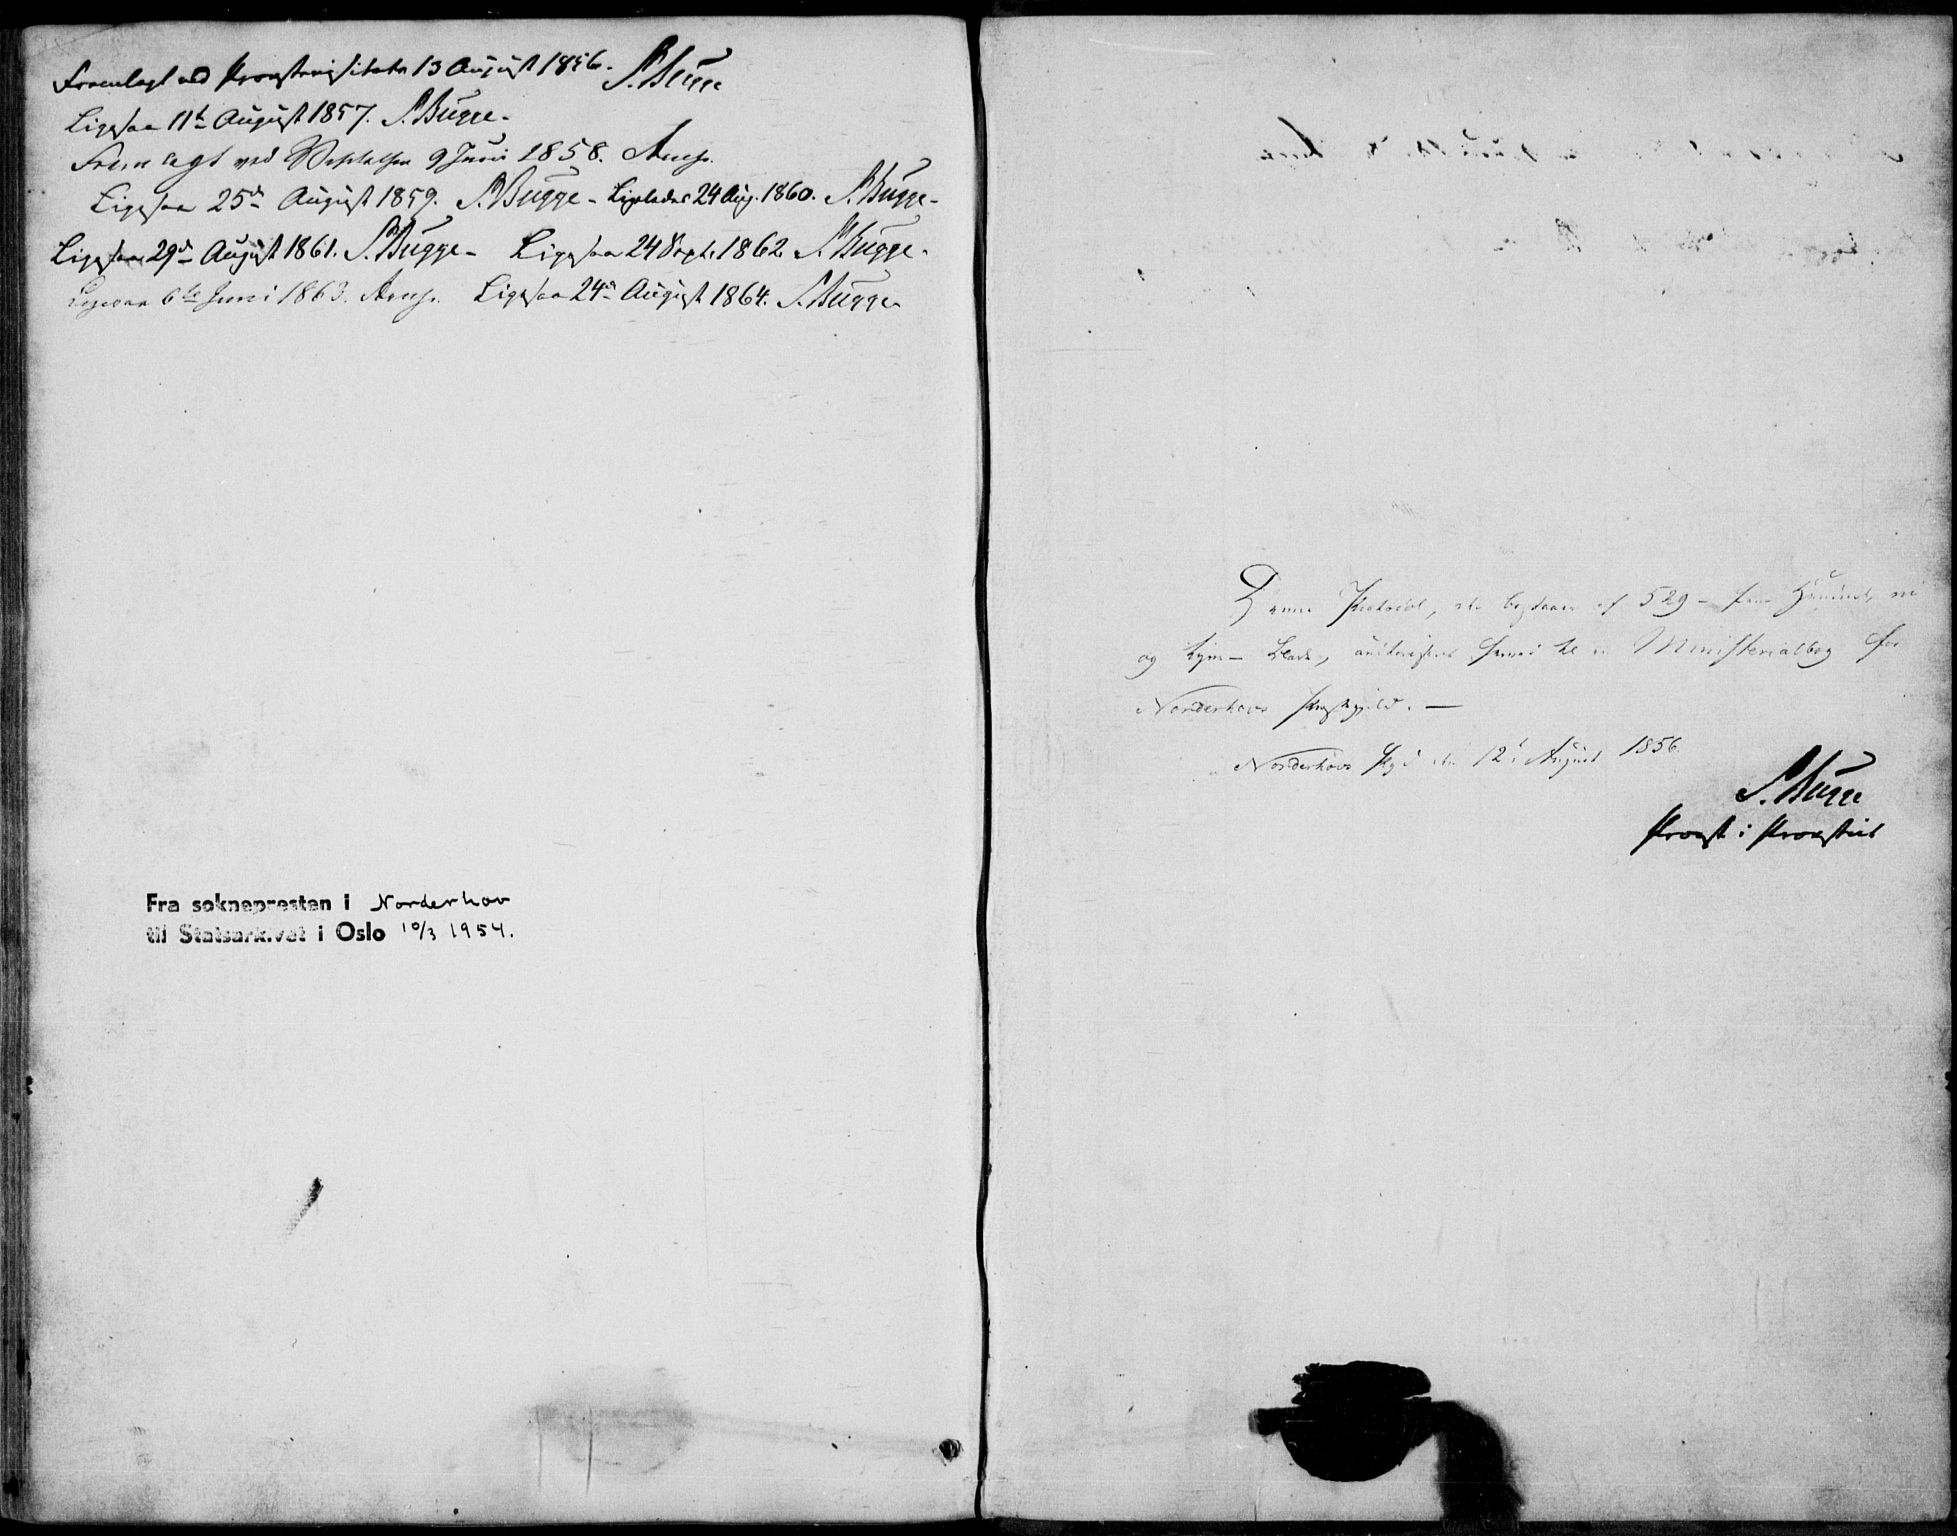 Fremlagt ved Provstevisitats 13 August 1856. S. Bugge
Ligesaa 11te August 1857. S. Bugge.
Fremlagt ved Visitatsen 9 Juni 1858. Arup.
Ligesaa 25de August 1859. S. Bugge - Ligeledes 24 Aug. 1860. S. Bugge -
Ligesaa 29de August 1861. S. Bugge - Ligesaa 24 Sept. 1862 S. Bugge.
Ligesaa 6te Juni 1863. Arup. Ligesaa 24de August 1864. S. Bugge
Fra soknepresten i Norderhov
til Statsarkivet i Oslo 10/3 1954.
Denne Protocol, der bestaaer af 529 - fem Hundred, ni
og tyve - Blade, autoriseres herved til en Ministerialbog for
Norderhovs Præstegjeld. -
Norderhovs Pgd den 12te August 1856.
S. Bugge
Provst i Provstiet